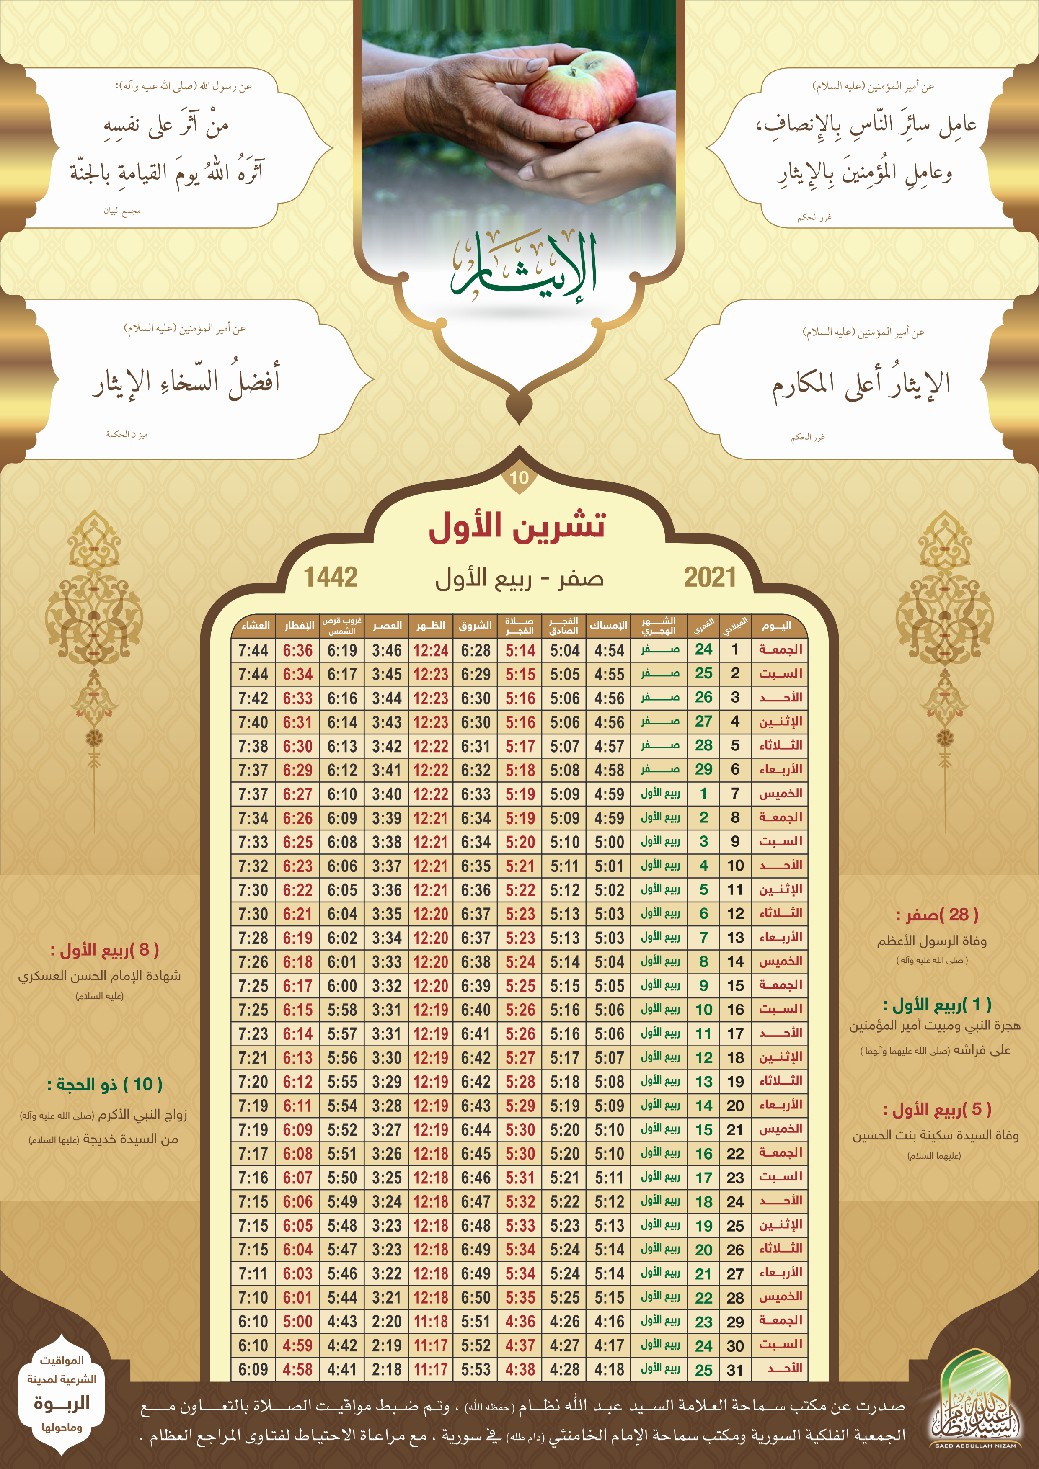 عن أمير المؤمنين (عليه السلام)
عامِل سائرَ النّاسِ بِالإنصافِ،
وعامِلِ المُؤمِنينَ بِالإيثارِ
غرر الحكم
عن رسول الله (صلى الله عليه وآله):
منْ آثَرَ على نفسِهِ
آثَرَهُ اللهُ يومَ القيامةِ بالجنّة
مجمع البيان
الإيثار
عن أمير المؤمنين (عليه السلام)
الإيثارُ أعلى المكارم
غرر الحكم
عن أمير المؤمنين (عليه السلام)
أفضلُ السّخاءِ الإيثار
ميزان الحكمة
10
تشرين الأول
2021 صفر - ربيع الأول 1442
اليوم الميلادي القمري الشهر الهجري الإمساك الفجر الصادق صلاة الفجر الشروق الظهر العصر غروب قرص الشمس الإفطار العشاء
الجمعة 1 24 صفر 4:54 5:04 5:14 6:28 12:24 3:46 6:19 6:36 7:44
السبت 2 25 صفر 4:55 5:05 5:15 6:29 12:23 3:45 6:17 6:34 7:44
الأحد 3 26 صفر 4:56 5:06 5:16 6:30 12:23 3:44 6:16 6:33 7:42
الإثنين 4 27 صفر 4:56 5:06 5:16 6:30 12:23 3:43 6:14 6:31 7:40
الثلاثاء 5 28 صفر 4:57 5:07 5:17 6:31 12:22 3:42 6:13 6:30 7:38
الأربعاء 6 29 صفر 4:58 5:08 5:18 6:32 12:22 3:41 6:12 6:29 7:37
الخميس 7 1 ربيع الأول 4:59 5:09 5:19 6:33 12:22 3:40 6:10 6:27 7:37
الجمعة 8 2 ربيع الأول 4:59 5:09 5:19 6:34 12:21 3:39 6:09 6:26 7:34
السبت 9 3 ربيع الأول 5:00 5:10 5:20 6:34 12:21 3:38 6:08 6:25 7:33
الأحد 10 4 ربيع الأول 5:01 5:11 5:21 6:35 12:21 3:37 6:06 6:23 7:32
الإثنين 11 5 ربيع الأول 5:02 5:12 5:22 6:36 12:21 3:36 6:05 6:22 7:30
الثلاثاء 12 6 ربيع الأول 5:03 5:13 5:23 6:37 12:20 3:35 6:04 6:21 7:30
الأربعاء 13 7 ربيع الأول 5:03 5:13 5:23 6:37 12:20 3:34 6:02 6:19 7:28
الخميس 14 8 ربيع الأول 5:04 5:14 5:24 6:38 12:20 3:33 6:01 6:18 7:26
الجمعة 15 9 ربيع الأول 5:05 5:15 5:25 6:39 12:20 3:32 6:00 6:17 7:25
السبت 16 10 ربيع الأول 5:06 5:16 5:26 6:40 12:19 3:31 5:58 6:15 7:25
الأحد 17 11 ربيع الأول 5:06 5:16 5:26 6:41 12:19 3:31 5:57 6:14 7:23
الإثنين 18 12 ربيع الأول 5:07 5:17 5:27 6:42 12:19 3:30 5:56 6:13 7:21
الثلاثاء 19 13 ربيع الأول 5:08 5:18 5:28 6:42 12:19 3:29 5:55 6:12 7:20
الأربعاء 20 14 ربيع الأول 5:09 5:19 5:29 6:43 12:19 3:28 5:54 6:11 7:19
الخميس 21 15 ربيع الأول 5:10 5:20 5:30 6:44 12:19 3:27 5:52 6:09 7:19
الجمعة 22 16 ربيع الأول 5:10 5:20 5:30 6:45 12:18 3:26 5:51 6:08 7:17
السبت 23 17 ربيع الأول 5:11 5:21 5:31 6:46 12:18 3:25 5:50 6:07 7:16
الأحد 24 18 ربيع الأول 5:12 5:22 5:32 6:47 12:18 3:24 5:49 6:06 7:15
الإثنين 25 19 ربيع الأول 5:13 5:23 5:33 6:48 12:18 3:23 5:48 6:05 7:15
الثلاثاء 26 20 ربيع الأول 5:14 5:24 5:34 6:49 12:18 3:23 5:47 6:04 7:15
الأربعاء 27 21 ربيع الأول 5:14 5:24 5:34 6:49 12:18 3:22 5:46 6:03 7:11
الخميس 28 22 ربيع الأول 5:15 5:25 5:35 6:50 12:18 3:21 5:44 6:01 7:10
الجمعة 29 23 ربيع الأول 4:16 4:26 4:36 5:51 11:18 2:20 4:43 5:00 6:10
السبت 30 24 ربيع الأول 4:17 4:27 4:37 5:52 11:17 2:19 4:42 4:59 6:10
الأحد 31 25 ربيع الأول 4:18 4:28 4:38 5:53 11:17 2:18 4:41 4:58 6:09
( 28 )صفر :
وفاة الرسول الأعظم
( صلى الله عليه وآله )
( 1 )ربيع الأول :
هجرة النبي ومبيت أمير المؤمنين
على فراشه (صلى الله عليهما وآلهما )
( 5 )ربيع الأول :
وفاة السيدة سكينة بنت الحسين
(عليهما السلام)
( 8 )ربيع الأول :
شهادة الإمام الحسن العسكري
(عليه السلام)
( 10 ) ذو الحجة :
زواج النبي الأكرم (صلى الله عليه وآله)
من السيدة خديجة (عليها السلام)
المواقيت
الشرعية لمدينة
الربوة
وماحولها
صدرت عن مكتب سماحة العلامة السيد عبد الله نظام (حفظه الله) ، وتم ضبط مواقيت الصلاة بالتعاون مع
الجمعية الفلكية السورية ومكتب سماحة الإمام الخامنئي (دام ظله) في سورية ، مع مراعاة الاحتياط لفتاوى المراجع العظام .
السيد عبد الله نظام
SAED ABDULLAH NIZAM